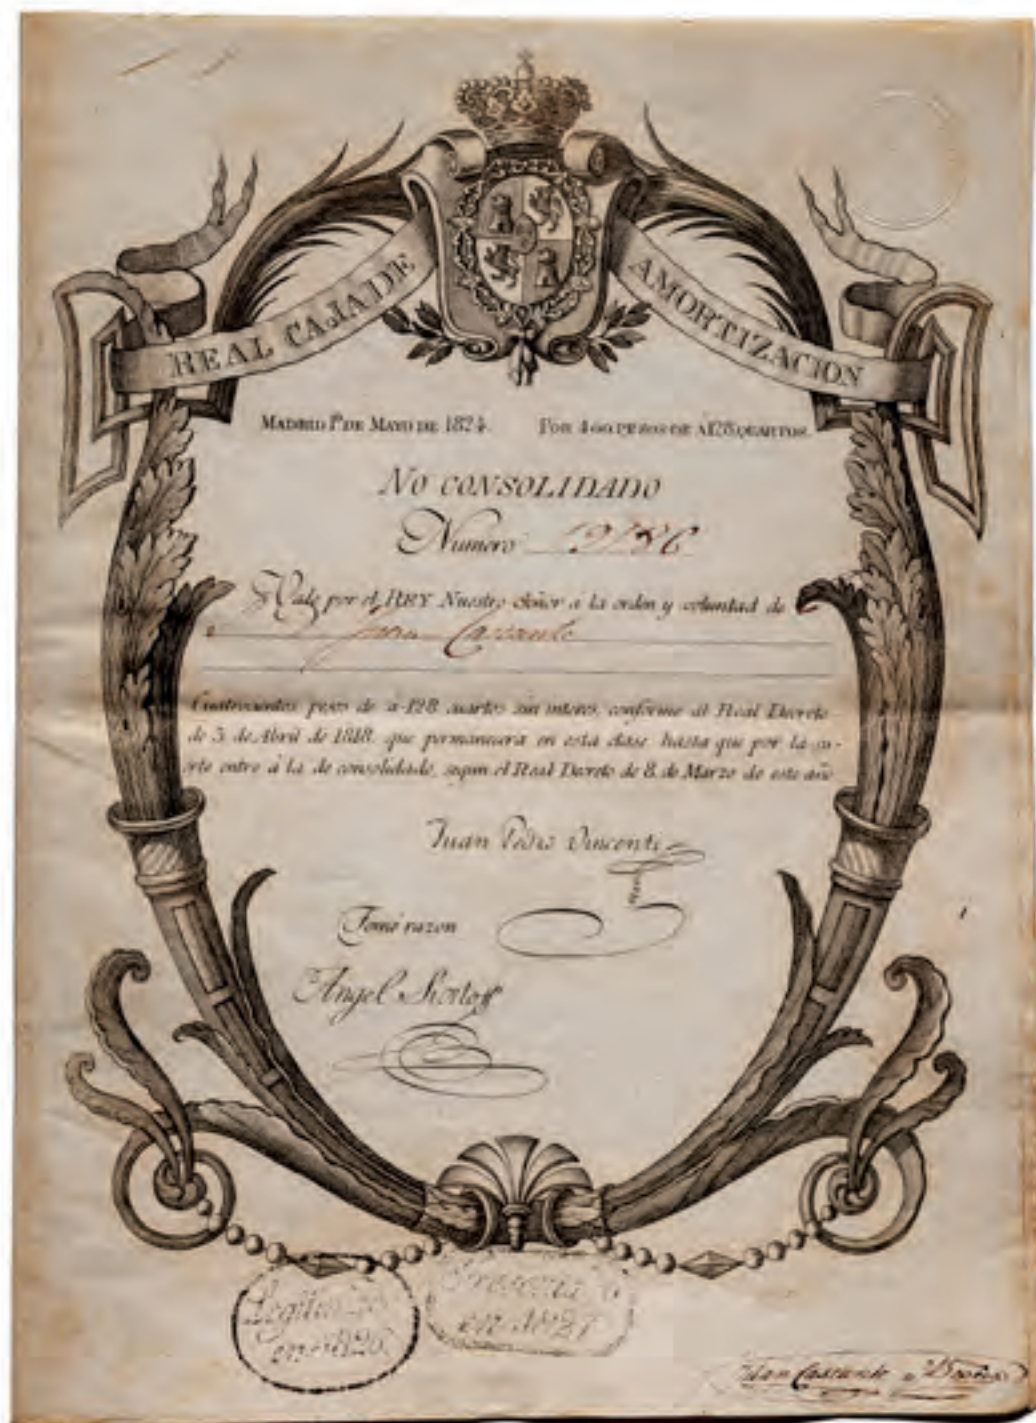 REAL CAJA DE AMORTIZACION
MADRID 1º DE MAYO DE 1824. POR 400 PESOS DE Á 128 QUARTOS.
NO CONSOLIDADO
Numero
Vale por el REY Nuestro Señor á la orden y voluntad de
Juan
Cuatrocientos pesos de á 128 cuartos sin interes, conforme al Real Decreto
de 3 de Abril de 1818, que permanecerá en esta clase hasta que por la su-
erte entre á la de consolidado, segun el Real Decreto de 8 de Marzo de este año
Juan Pedro Vincenti
Tomé razon
Angel
en 1826
en 1827
Juan